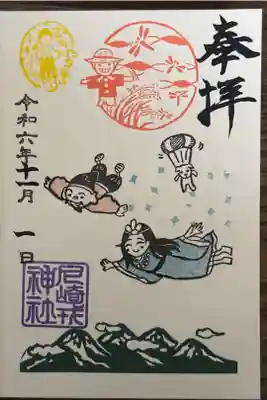 奉拝
令和六年十一月一日
尼崎戎
神社